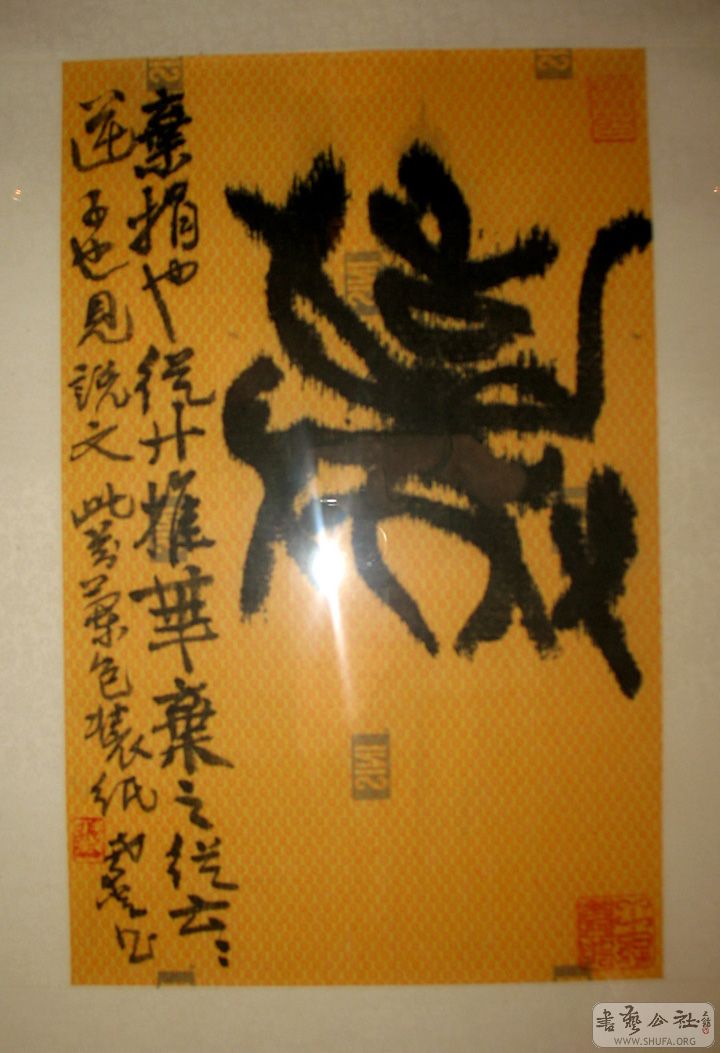 棄
棄捐也从廾推華棄之从𠫓𠫓
逆子也見說文此
包裝紙
書藝公社
WWW.SHUFA.ORG